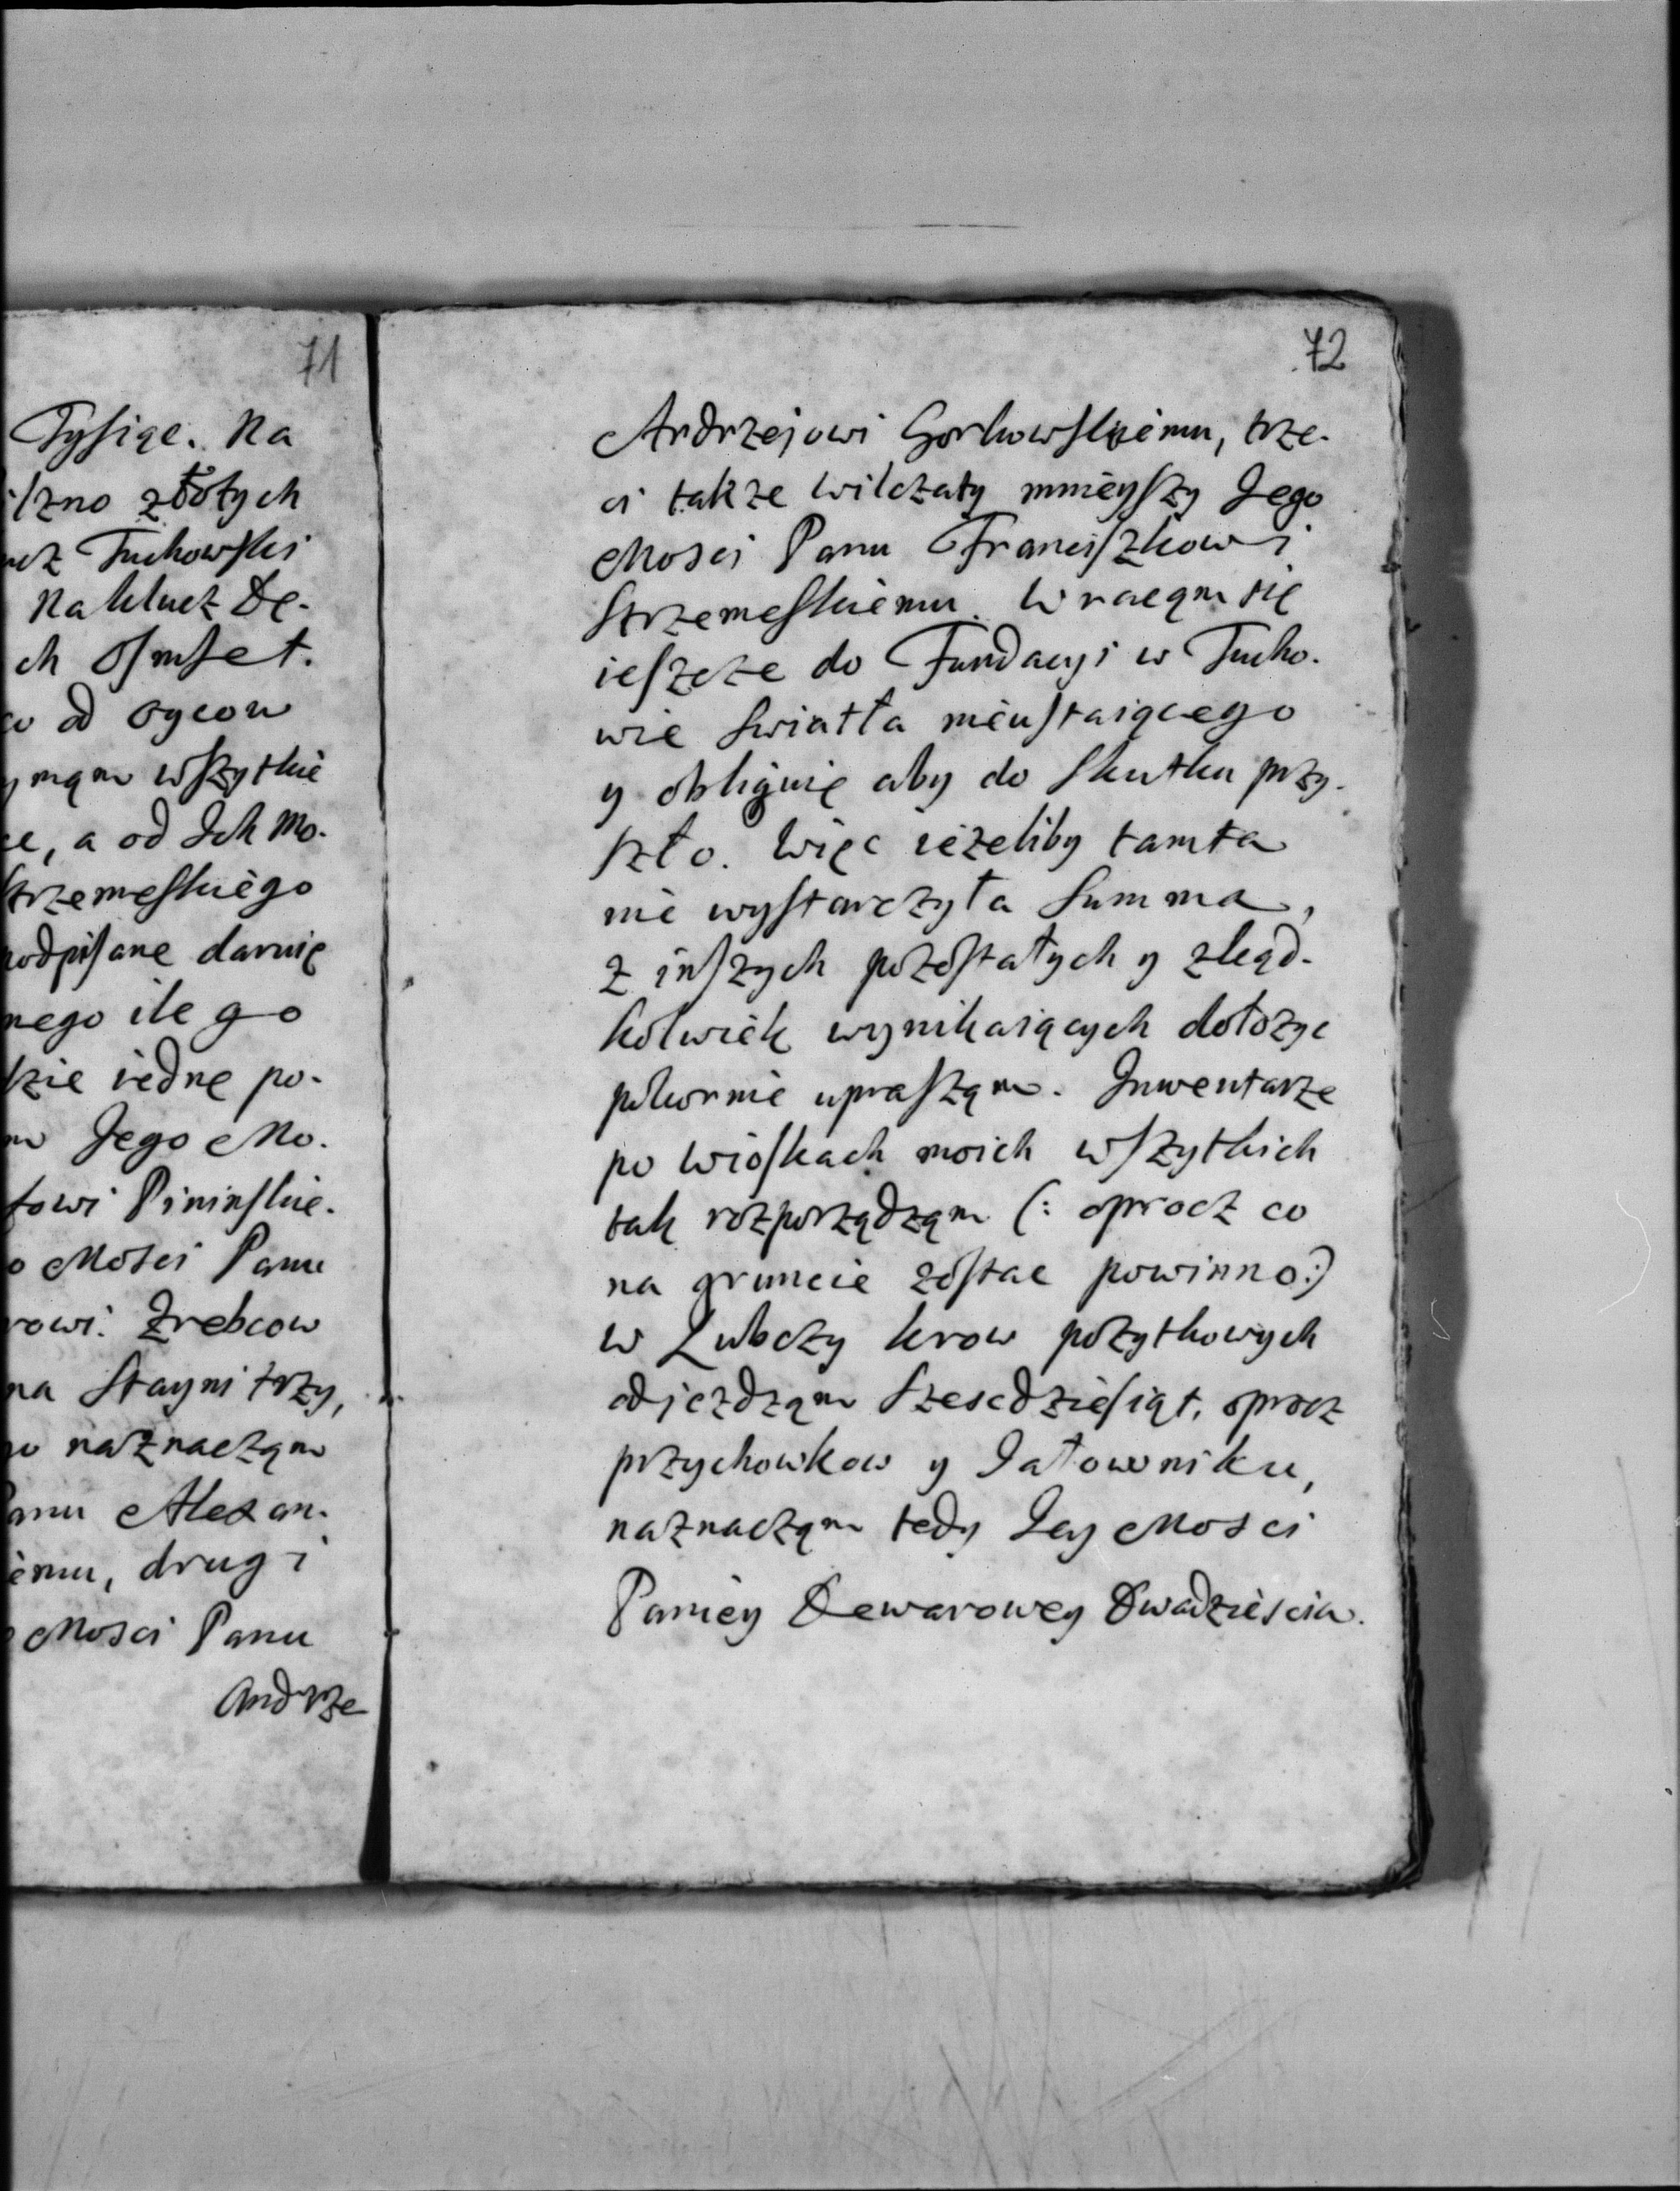 71
Tysiąc. Na
iszno złotych
ucz Tuchowski
Na klucz Dę-
ch osmset.
co od oycow
ymąm wszytkie
ce, a od Ich Mo-
Strzemeskiego
podpisane daruię
nego ile go
kie iednę po-
m Jego Mo-
towi Pininskie-
o Mosci Panu
rowi. Zrebcow
na Stayni trzy,
go naznacząm
Panu Alexan-
iemu, drugi
o Mosci Panu
Andrze
72
Andrzejowi Gorkowskiemu, trze-
ci takze wilczaty mnieyszy Jego
Mosci Panu Franciszkowi
Strzemeskiemu. Wracąm się
ieszcze do Fundacyi w Tucho-
wie swiatła nieustaiącego
y obliguię aby do skutku przy-
szło. Więc ieżeliby tamta
nie wystarczyła Summa,
z inszych pozostałych y zkąd-
kolwiek wynikaiących dołozyc
pokornie uprasząm. Inwentarze
po wioskach moich wszytkich
tak rozporządząm (: oprocz co
na gruncie zostac powinno:)
w Lubczy krow pozytkowych
odjezdząm szescdziesiąt, oprocz
przychowkow y Jałowniku,
naznacząm tedy Jey Mosci
Paniey Dewarowey Dwadziescia.